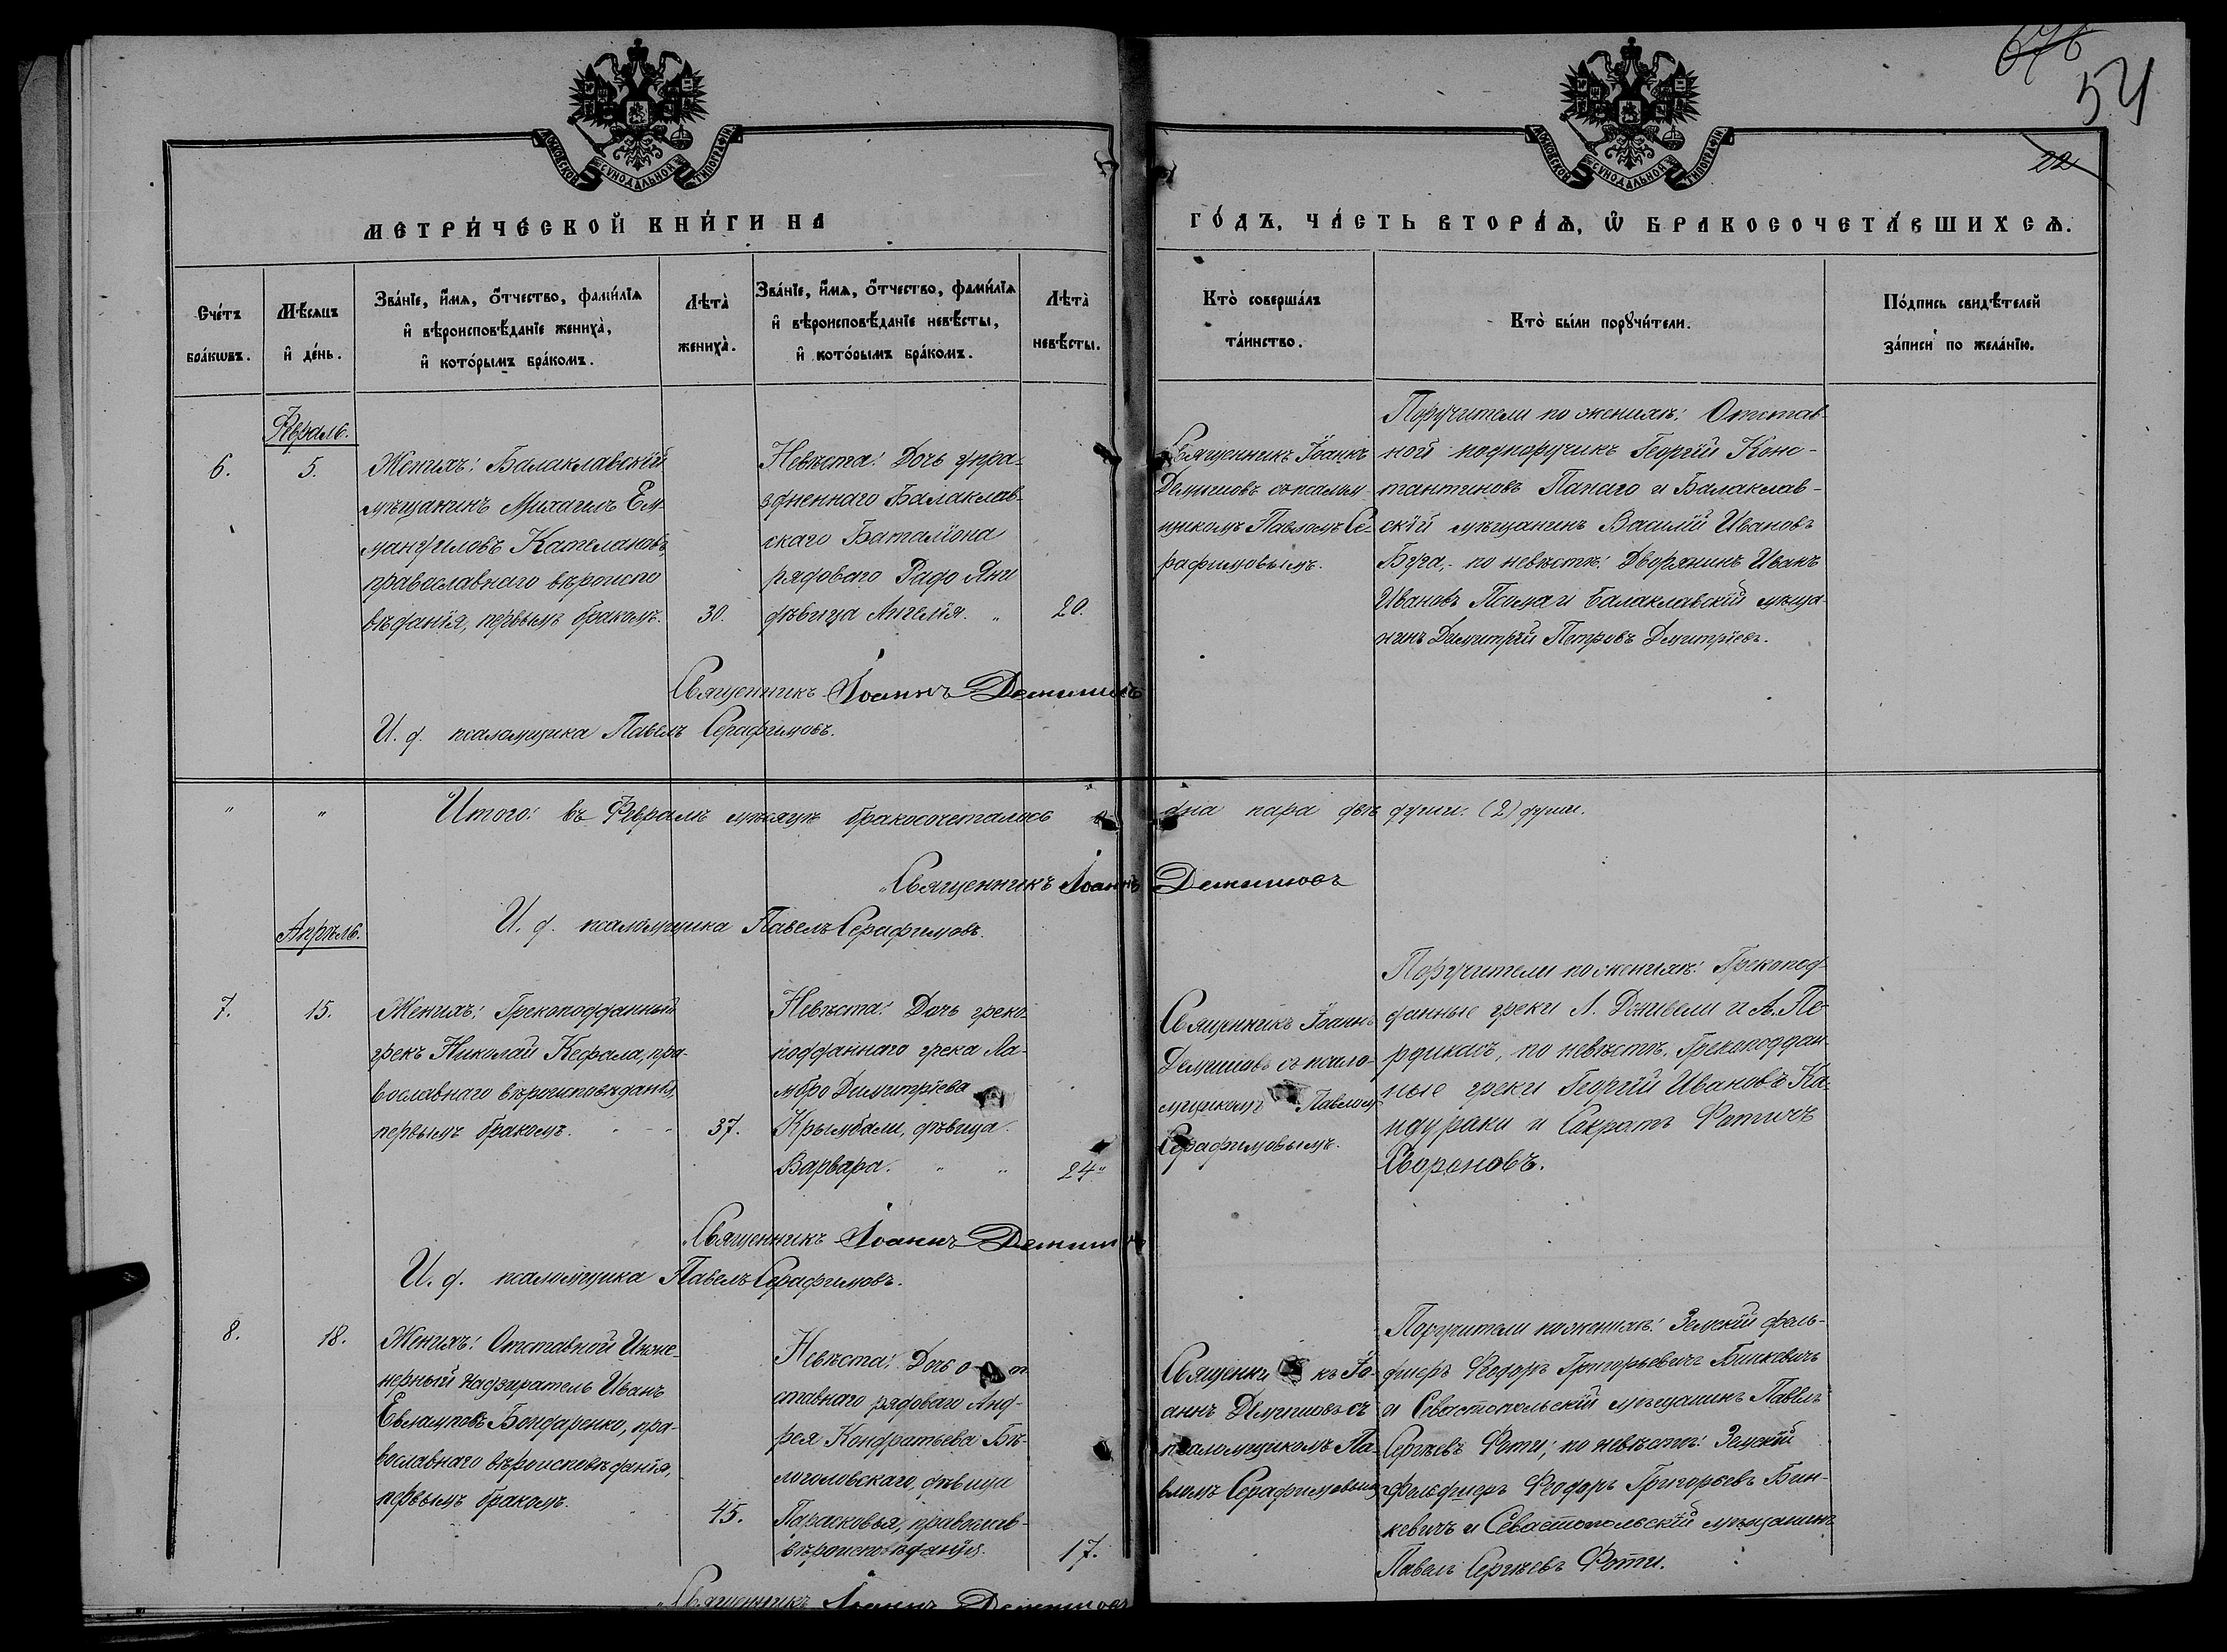 676
54
22
МОСКОВСКОЙ СѴНОДАЛЬНОЙ ТИПОГРАФІИ
МОСКОВСКОЙ СѴНОДАЛЬНОЙ ТИПОГРАФІИ
МЕТРИ́ЧЕСКОЙ КНИ́ГИ НА
ГО́ДЪ, ЧА́СТЬ ВТОРА́Ѧ, Ѿ БРАКОСОЧЕТА́ВШИХСѦ.
Сче́тъ
бра́кѡвъ.
Мѣ́сѧцъ
и҆ де́нь.
Зва́нїе, и҆́мѧ, ѻ҆́тчество, фами́лїѧ
и҆ вѣроисповѣ́данїе жениха̀,
и҆ кото́рымъ бра́комъ.
Лѣта̀
жениха̀.
Зва́нїе, и҆́мѧ, ѻ҆́тчество, фами́лїѧ
и҆ вѣроисповѣ́данїе невѣ́сты,
и҆ кото́рымъ бра́комъ.
Лѣта̀
невѣ́сты.
Кто̀ соверша́лъ
та́инство.
Кто̀ бы́ли порꙋчи́тели.
По́дпись свидѣ́телей
за́писи по жела́нїю.
Февраль.
6.
5.
Женихъ: Балаклавскій
мѣщанинъ Михаилъ Ем
мануиловъ Кателановъ,
православнаго вѣроиспо
вѣданія, первымъ бракомъ.
30.
Невѣста: Дочь упра-
здненнаго Балаклав-
скаго Баталіона
рядоваго Радо Яни
дѣвица Ангелія. "
20.
Священникъ Іоаннъ
Демишовъ съ псалом
щикомъ Павломъ Се-
рафимовымъ.
Поручители по женихѣ: Отстав-
ной подпоручикъ Георгій Конс-
тантиновъ Папаго и Балаклав-
скій мѣщанинъ Василій Ивановъ
Буга, - по невѣстѣ: Дворянинъ Иванъ
Ивановъ Псима и Балаклавскій мѣща-
нинъ Димитрій Петровъ Дмитріевъ.
Священникъ Іоаннъ Демишовъ
И. д. псаломщика Павелъ Серафимовъ.
" " Итого: въ Февралѣ мѣсяцѣ бракосочеталось одна пара двѣ души. (2) души.
Священникъ Іоаннъ Демишовъ
И. д. псаломщика Павелъ Серафимовъ.
Апрѣль.
7.
15.
Женихъ: Грекоподданный
грекъ Николай Кефала, пра-
вославнаго вѣроисповѣданія,
первымъ бракомъ.
37.
Невѣста: Дочь греко-
подданнаго грека Ла-
мбро Димитріева
Крымбали, дѣвица
Варвара. " "
24"
Священникъ Іоаннъ
Демишовъ съ псало-
мщикомъ Павломъ
Серафимовымъ.
Поручители по женихѣ: Грекопод-
данные греки Л. Донвели и А. Пе-
рдикасъ, по невѣстѣ: Грекоподдан-
ные греки Георгій Ивановъ Ка-
ндураки и Сократъ Фотичъ
Свороновъ.
Священникъ Іоаннъ Демишовъ
И. д. псаломщика Павелъ Серафимовъ.
8.
18.
Женихъ: Отставной Инже-
нерный надзиратель Иванъ
Евлампіевъ Бондаренко, пра-
вославнаго вѣроисповѣданія,
первымъ бракомъ.
45.
Невѣста: Дочь от
ставнаго рядоваго Анд-
рея Кондратьева Бѣ-
логоловскаго, дѣвица
Парасковья, православ-
вѣроисповѣданія.
17.
Священникъ Іо-
аннъ Демишовъ съ
псаломщикомъ Па-
вломъ Серафимовымъ
Поручители по женихѣ: Земскій фель-
дшеръ Феодоръ Григорьевичъ Бинкевичъ
и Севастопольскій мѣщанинъ Павелъ
Сергѣевъ Фоти; по невѣстѣ: Земскій
Фельдшеръ Феодоръ Григорьевъ Бин-
кевичъ и Севастопольскій мѣщанинъ
Павелъ Сергѣевъ Фоти.
Священникъ Іоаннъ Демишовъ